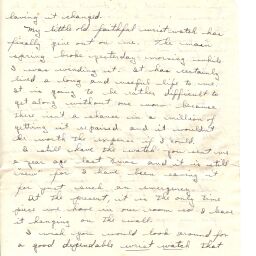 having it changed.
My little old faithful wrist watch has
finally given out on me. The main
spring broke yesterday morning while
I was winding it. It has certainly
lived a long and useful life to me.
It is going to be rather difficult to
get along without one now because
there isn't a chance in a million of
getting it repaired and it wouldn't
be worth the expense if I could.
I still have the watch you sent me
a year ago last Xmas and it is still
new for I have been saving it
for just such an emergency.
At the present, it is the only time
piece we have in our room so I have
it hanging on the wall.
I wish you would look around for
a good dependable wrist watch that